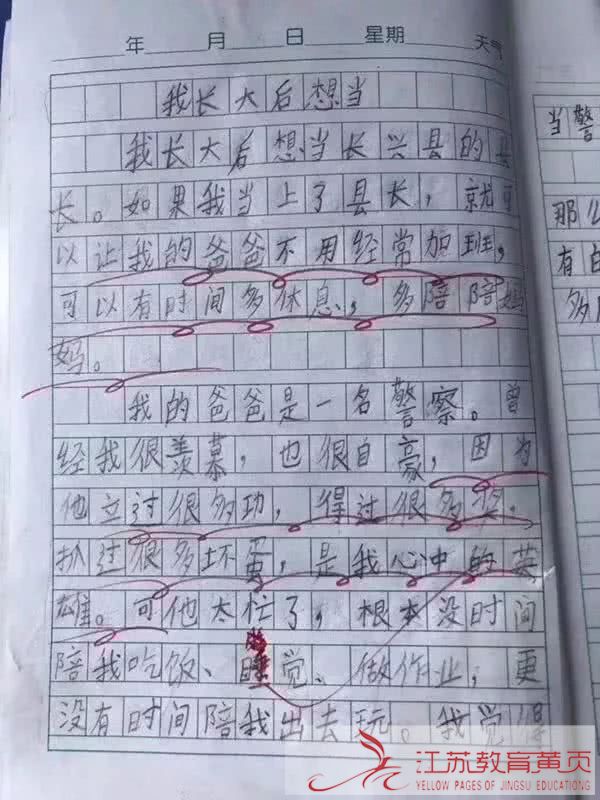 年 月 日 星期 天气
我长大后想当
我长大后想当长兴县的县
长。如果我当上了县长，就可
以让我的爸爸不用经常加班，
可以有时间多休息，多陪陪妈
妈。
我的爸爸是一名警察。曾
经我很羡慕，也很自豪，因为
他立过很多功，得过很多奖，
抓过很多坏蛋，是我心中的英
雄。可他太忙了，根本没时间
陪我吃饭、睡觉、做作业，更
没有时间陪我出去玩。我觉得
当警
那么
有白
多陪
江苏教育黄页
YELLOW PAGES OF JINGSU EDUCATIONG